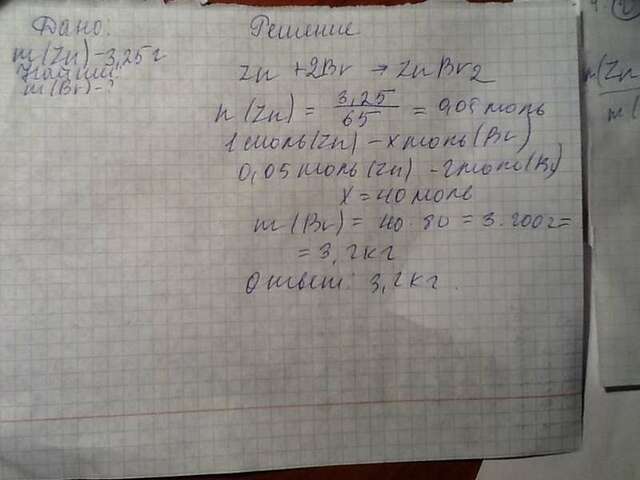 Дано:
m(Zn)-3,25г
Найти:
m(Br)-?
Решение
Zn + 2Br → ZnBr2
n(Zn) = 3,25/65 = 0,05 моль
1 моль(Zn) - x моль(Br)
0,05 моль(Zn) - 2 моль(Br)
x = 40 моль
m(Br) = 40 · 80 = 3.200г =
= 3,2 кг
Ответ: 3,2 кг.
n(Zn
m(